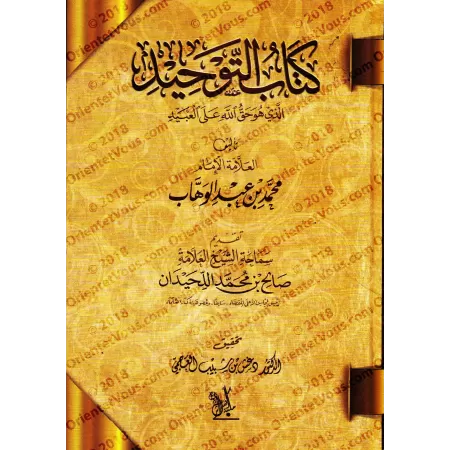 كتاب التوحيد
الذي هو حق الله على العبيد
تأليف
العلامة الإمام
محمد بن عبد الوهاب
تقديم
سماحة الشيخ العلامة
صالح بن محمد اللحيدان
تحقيق
الدكتور دغش بن شبيب العجمي
© 2018
OrientetVous.com